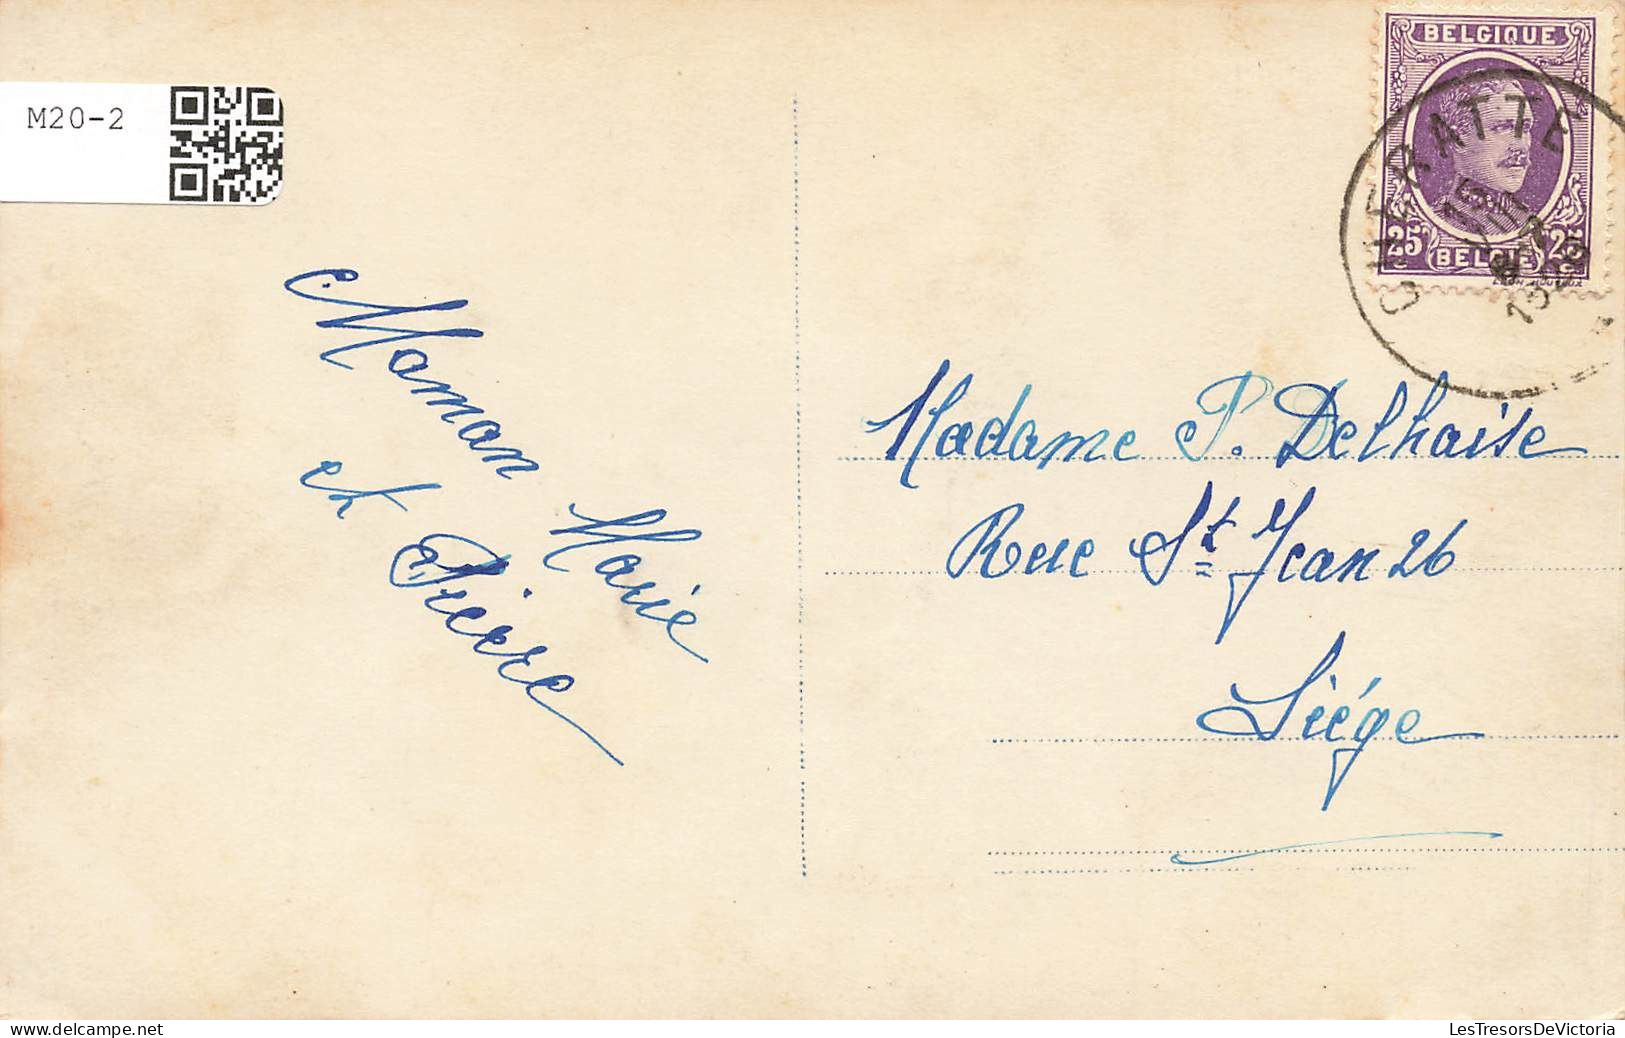 M20-2
BELGIQUE
CHERATTE
25 25
BELGIË
Maman Marie
et Pierre
Madame P. Delhaise
Rue St Jean 26
Liége
LesTresorsDeVictoria
delcampe.net